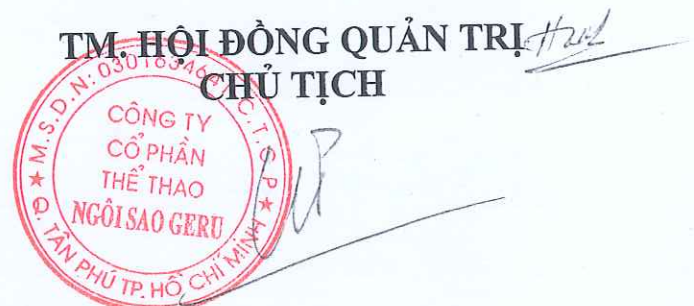 TM. HỘI ĐỒNG QUẢN TRỊ
CHỦ TỊCH
M.S.D.N: 0301634641 C.T.C.P
CÔNG TY
CỔ PHẦN
THỂ THAO
NGÔI SAO GERU
Q. TÂN PHÚ TP. HỒ CHÍ MINH